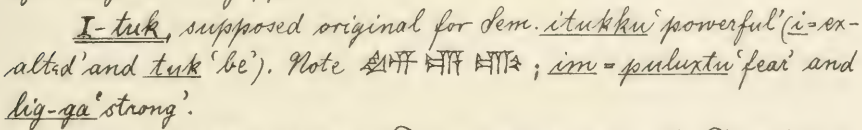 I-tuk, supposed original for Sem. itukku ‘powerful’ (i = ex-
alted’ and tuk ‘be’). Note ; im = puluxtu ‘fear’ and
lig-ga ‘strong’.